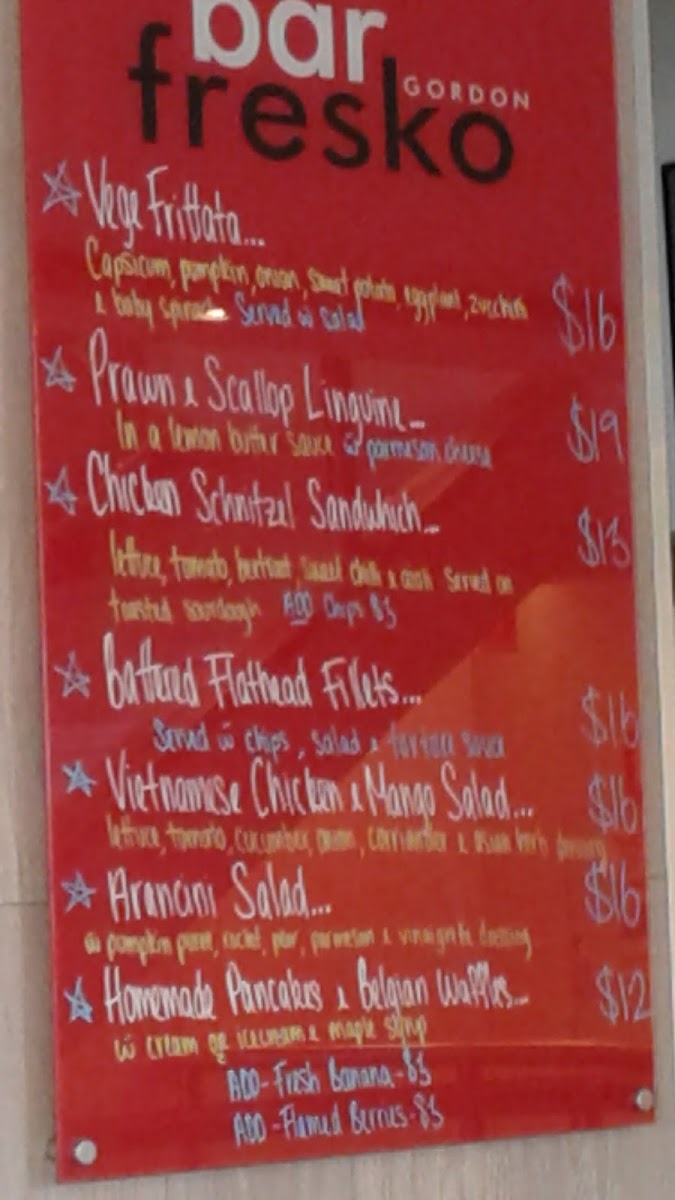 bar
fresko GORDON
Vege Frittata...
Capsicum, pumpkin, onion, sweet potato, eggplant, zucchini
& baby spinach Served w salad $16
Prawn & Scallop Linguine...
In a lemon butter sauce w parmesan cheese $19
Chicken Schnitzel Sandwhich...
$13
lettuce, tomato, beetroot, sweet chilli & aioli Served on
toasted sourdough ADD Chips $3
Battered Flathead Fillets...
Served w chips, salad & tartare sauce $16
Vietnamese Chicken & Mango Salad... $16
lettuce, tomato, cucumber, onion, corriander & asian herb dressing
Arancini Salad... $16
w pumpkin puree, rocket, pear, parmesan & vinaigrette dressing
Homemade Pancakes & Belgian Waffles... $12
w cream or icecream & maple syrup
ADD-Fresh Banana-$3
ADD-Flamed Berries-$3